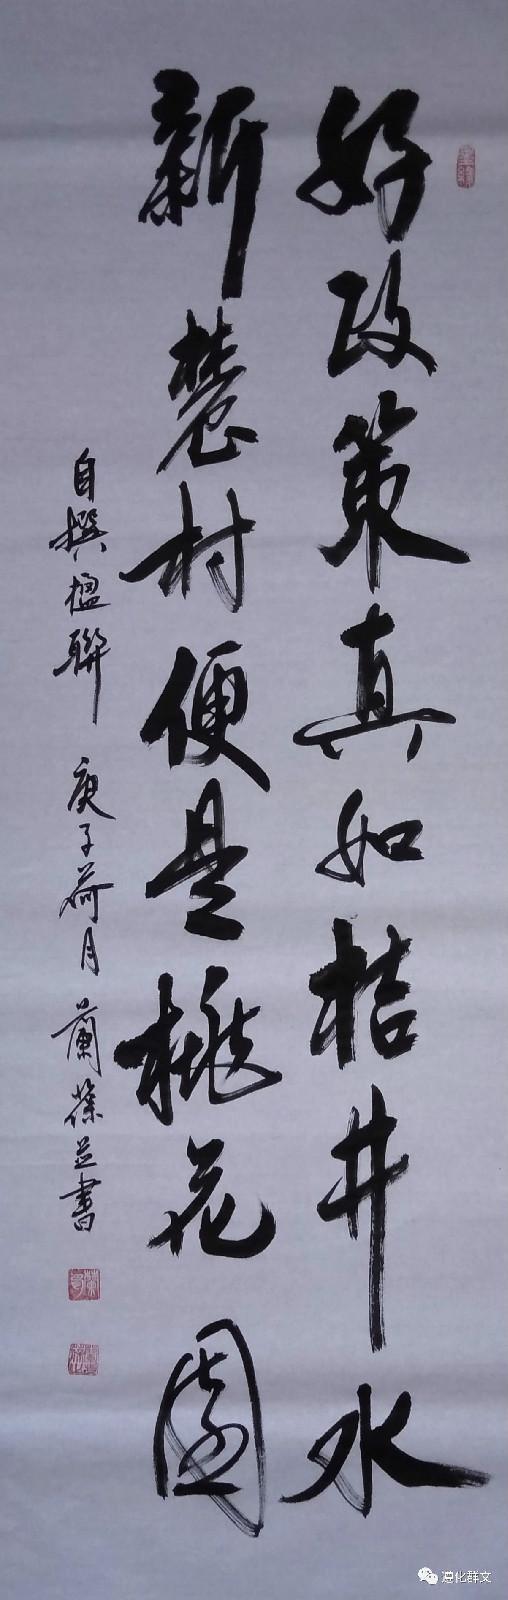 好政策真如桔井水
新農村便是桃花園
自撰楹聯 庚子荷月 蘭蓧並書
遵化群文